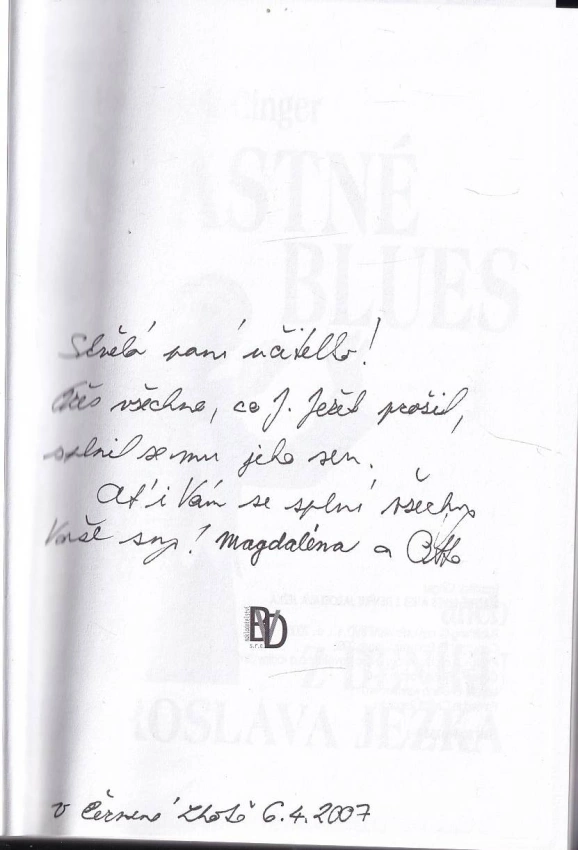 Skvělá paní učitelko!
Přes všechno, co J. Ježek prožil,
splnil se mu jeho sen.
Ať i Vám se splní všechny
Vaše sny! Magdaléna a Otto
BVD
s.r.o.
v Červené Lhotě 6.4.2007
inger
ŠŤASTNÉ
BLUES
aneb
Z DENÍKU
JAROSLAVA JEŽKA